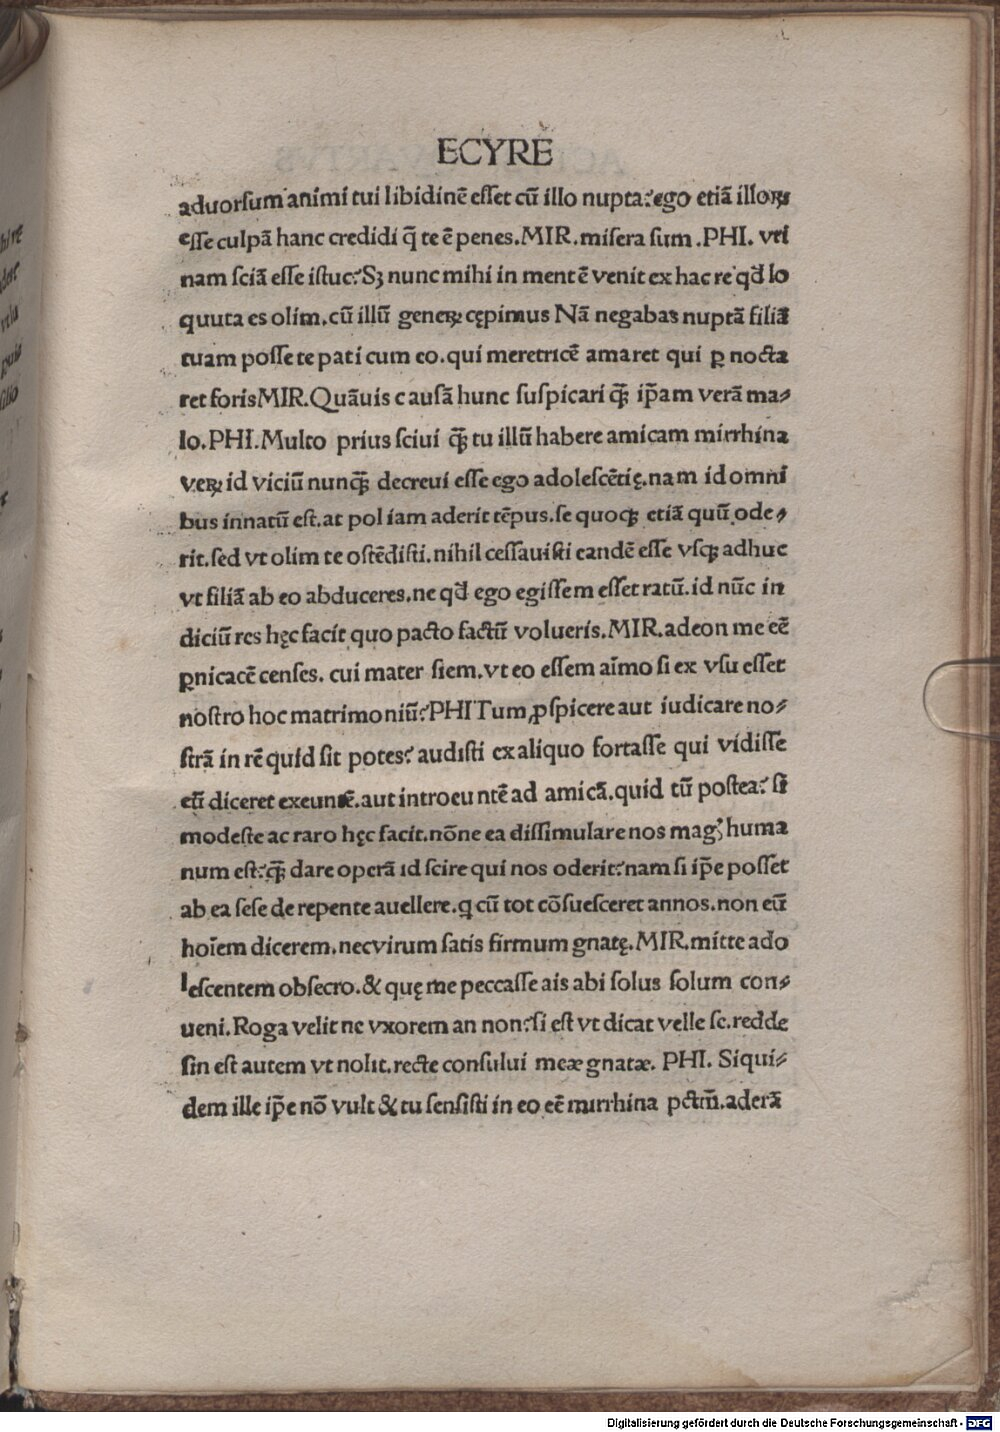 ECYRE
aduorsum animi tui libidinē esset cū illo nupta? ego etiā illoꝝ
esse culpā hanc credidi q̄ te ē penes. MIR. misera sum. PHI. vti
nam sciā esse istuc? Sꝫ nunc mihi in mentē venit ex hac re qd̄ lo
quuta es olim. cū illū generꝝ cępimus Nā negabas nuptā filiā
tuam posse te pati cum eo. qui meretricē amaret qui ꝑ nocta
ret foris MIR. Quāuis causā hunc suspicari qꝫ̄ ip̄am verā ma⸗
lo. PHI. Multo prius sciui qꝫ̄ tu illū habere amicam mirrhina
veꝝ id viciū nunqꝫ̄ decreui esse ego adolescētię. nam id omni
bus innatū est. at pol iam aderit tēpus. se quoqꝫ etiā quū ode⸗
rit. sed vt olim te ostēdisti. nihil cessauisti eandē esse vsqꝫ adhuc
vt filiā ab eo abduceres. ne qd̄ ego egissem esset ratū. id nūc in
diciū res hęc facit quo pacto factū volueris. MIR. adeon me eē
ꝑnicacē censes. cui mater siem. vt eo essem aīmo si ex vsu esset
nostro hoc matrimoniū? PHI Tum ꝓspicere aut iudicare no⸗
strā in rē quid sit potes? audisti ex aliquo fortasse qui vidisse
eū diceret exeuntē. aut introeuntē ad amicā. quid tū postea? si
modeste ac raro hęc facit. nōne ea dissimulare nos magꝰ huma
num est? qꝫ̄ dare operā id scire qui nos oderit? nam si ip̄e posset
ab ea sese de repente auellere. q cū tot cōsuesceret annos. non eū
hoīem dicerem. nec virum satis firmum gnatę. MIR. mitte ado
lescentem obsecro. & quę me peccasse ais abi solus solum con⸗
ueni. Roga velit ne vxorem an non? si est vt dicat velle se. redde
sin est autem vt nolit. recte consului meæ gnatæ. PHI. Siqui⸗
dem ille ip̄e nō vult & tu sensisti in eo eē mirrhina pctm̄. aderā
Digitalisierung gefördert durch die Deutsche Forschungsgemeinschaft - DFG